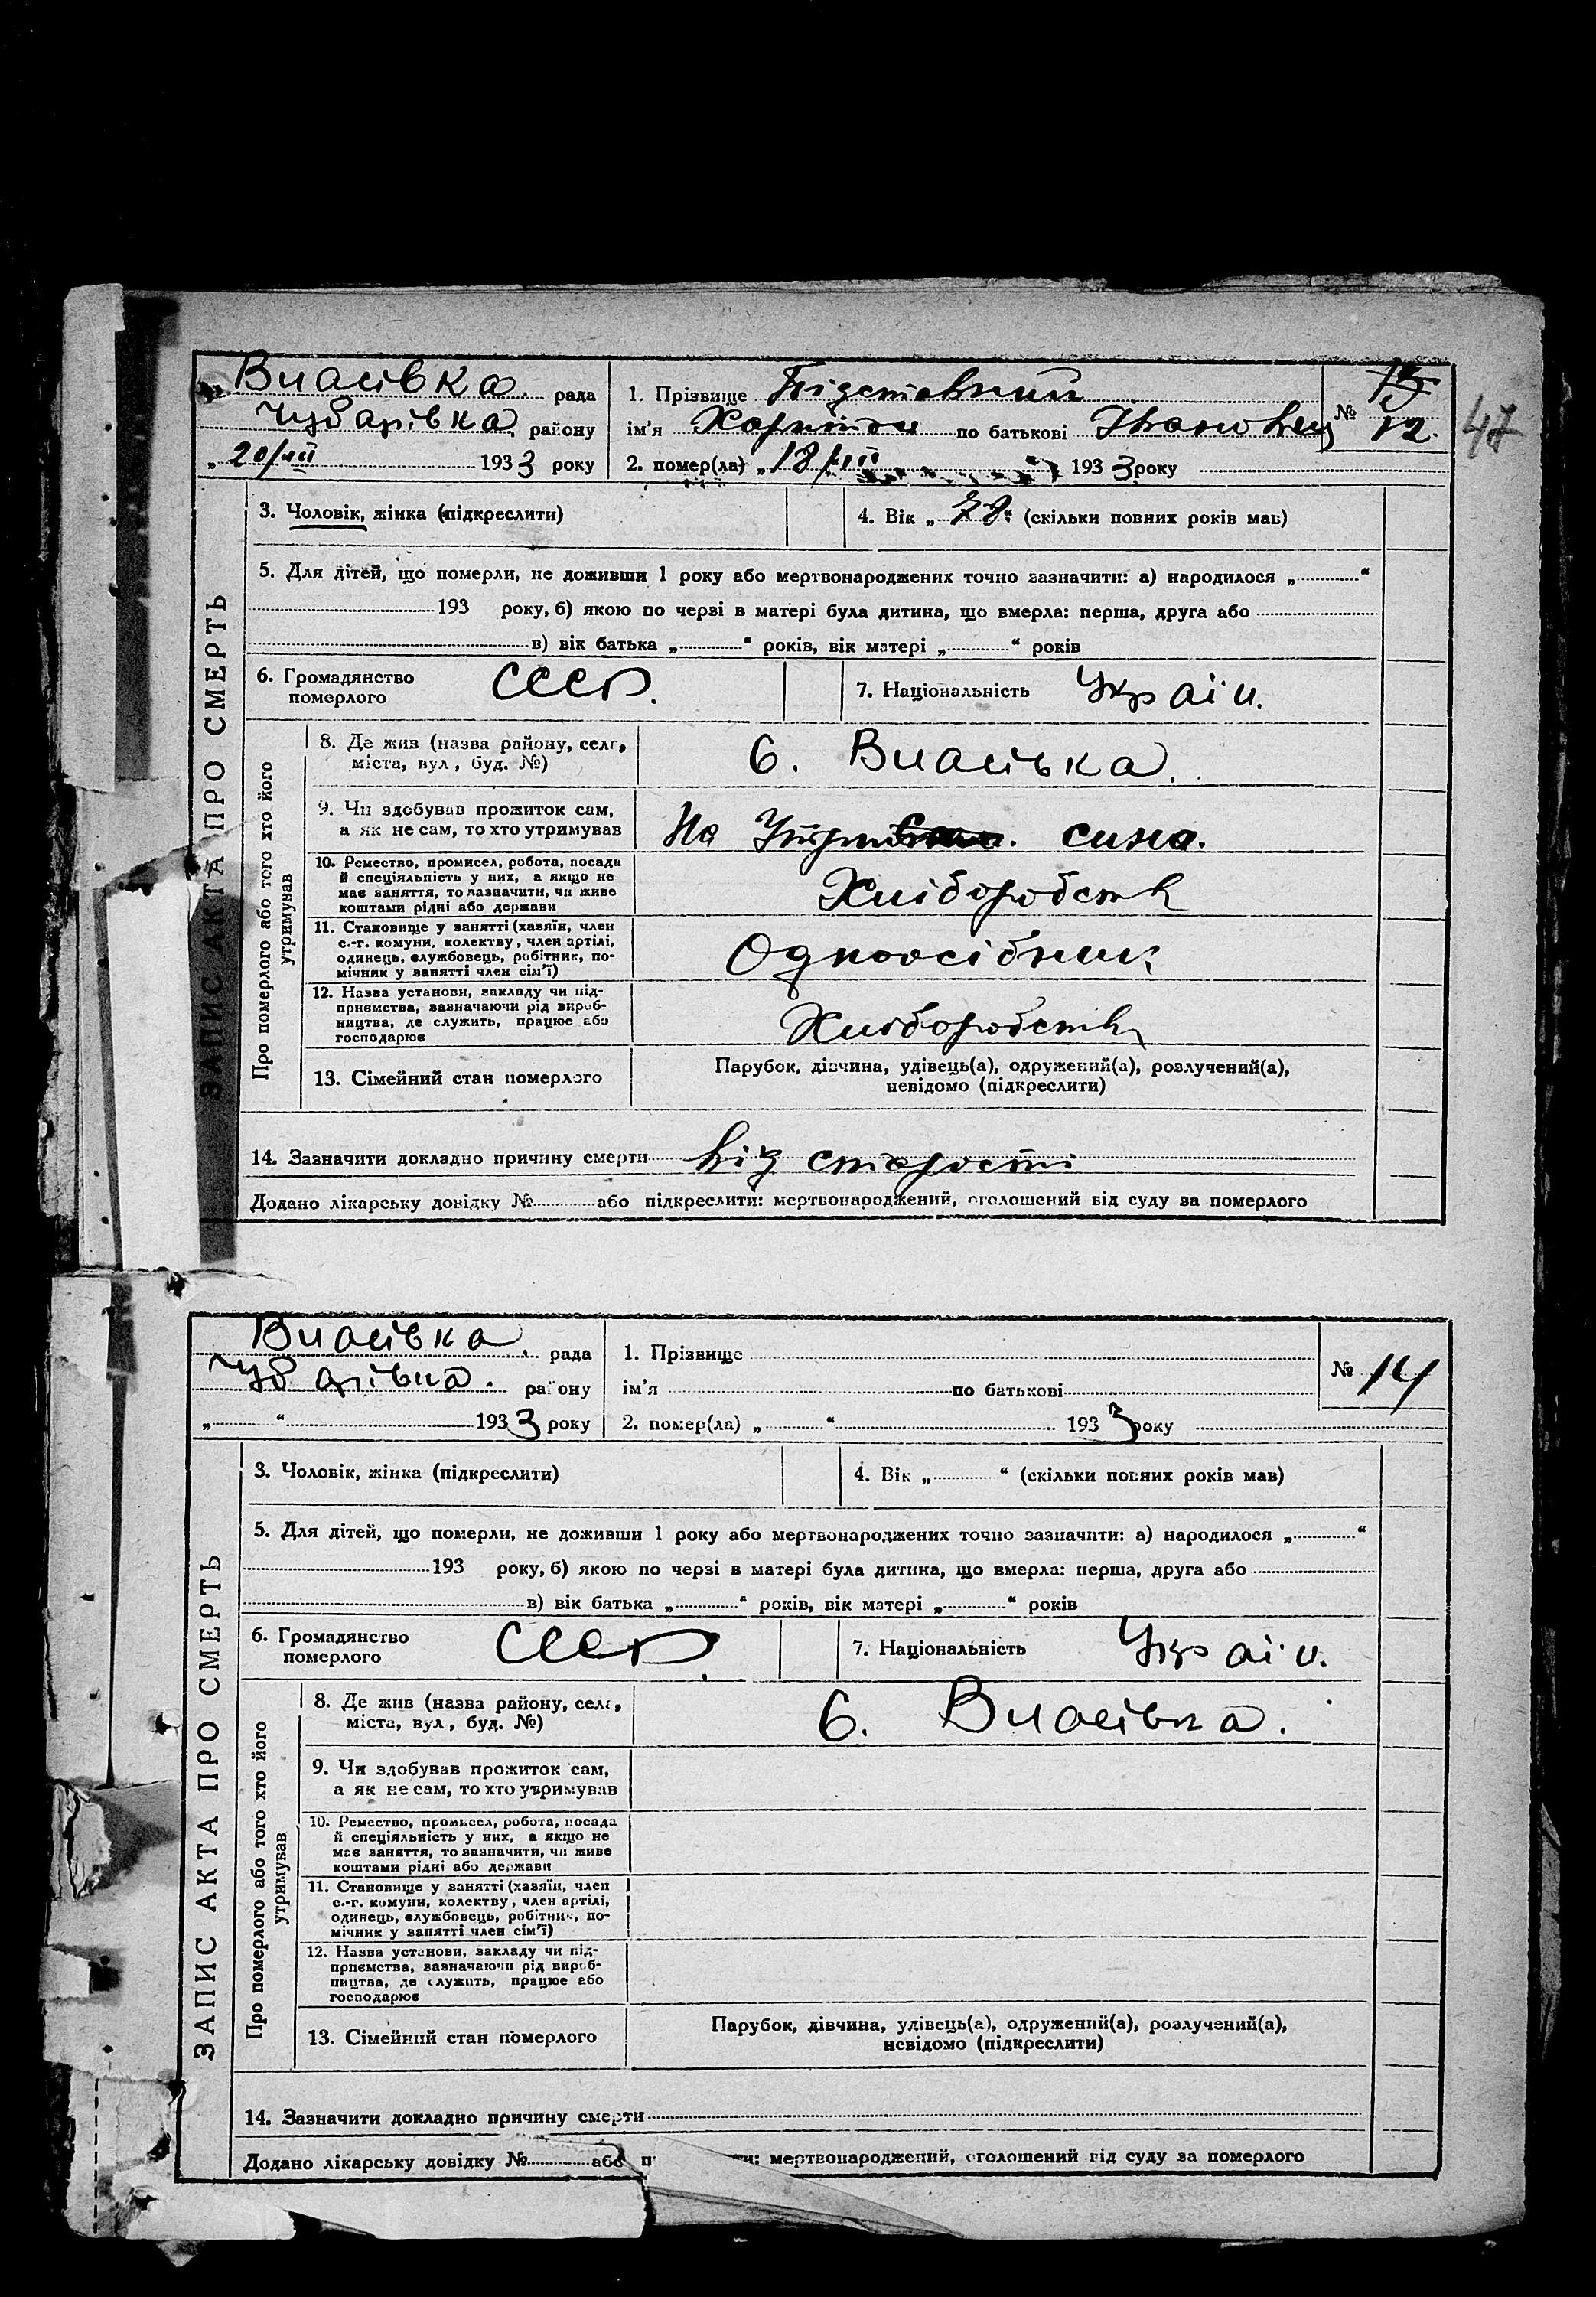 Власівка. рада
Чубарівка району
„ 20/III 1933 року
1. Прізвище Підставний
ім'я Харитон по батькові Іванович
2. помер(ла) „ 18/III 1933 року
№ 12.
47
ЗАПИС АКТА ПРО СМЕРТЬ
3. Чоловік, жінка (підкреслити)
4. Вік „ 78 “ (скільки повних років мав)
5. Для дітей, що померли, не доживши 1 року або мертвонароджених точно зазначити: а) народилося „ “
193 року, б) якою по черзі в матері була дитина, що вмерла: перша, друга або
в) вік батька „ “ років, вік матері „ “ років
6. Громадянство
померлого
СССР.
7. Національність Україн.
Про померлого або того хто його
утримував
8. Де жив (назва району, села,
міста, вул, буд. №)
с. Власівка.
9. Чи здобував прожиток сам,
а як не сам, то хто утримував
На сина.
10. Ремество, промисел, робота, посада
й спеціяльність у них, а якщо не
має заняття, то зазначити, чи живе
коштами рідні або держави
Хліборобств
11. Становище у занятті (хазяїн, член
с.-г. комуни, колективу, член артілі,
одинець, службовець, робітник, по-
мічник у занятті член сім'ї)
Одноосібник
12. Назва установи, закладу чи під-
приємства, зазначаючи рід вироб-
ництва, де служить, працює або
господарює
Хліборобств
13. Сімейний стан померлого
Парубок, дівчина, удівець(а), одружений(а), розлучений(а),
невідомо (підкреслити)
14. Зазначити докладно причину смерти від старости
Додано лікарську довідку № або підкреслити: мертвонароджений, оголошений від суду за померлого
Власівка. рада
Чубарівка. району
„ “ 1933 року
1. Прізвище
ім'я по батькові
2. помер(ла) „ “ 1933 року
№ 14
ЗАПИС АКТА ПРО СМЕРТЬ
3. Чоловік, жінка (підкреслити)
4. Вік „ “ (скільки повних років мав)
5. Для дітей, що померли, не доживши 1 року або мертвонароджених точно зазначити: а) народилося „ “
193 року, б) якою по черзі в матері була дитина, що вмерла: перша, друга або
в) вік батька „ “ років, вік матері „ “ років
6. Громадянство
померлого
СССР.
7. Національність Україн.
Про померлого або того хто його
утримував
8. Де жив (назва району, села,
міста, вул, буд. №)
с. Власівка.
9. Чи здобував прожиток сам,
а як не сам, то хто утримував
10. Ремество, промисел, робота, посада
й спеціяльність у них, а якщо не
має заняття, то зазначити, чи живе
коштами рідні або держави
11. Становище у занятті (хазяїн, член
с.-г. комуни, колективу, член артілі,
одинець, службовець, робітник, по-
мічник у занятті член сім'ї)
12. Назва установи, закладу чи під-
приємства, зазначаючи рід вироб-
ництва, де служить, працює або
господарює
13. Сімейний стан померлого
Парубок, дівчина, удівець(а), одружений(а), розлучений(а),
невідомо (підкреслити)
14. Зазначити докладно причину смерти
Додано лікарську довідку № або мертвонароджений, оголошений від суду за померлого